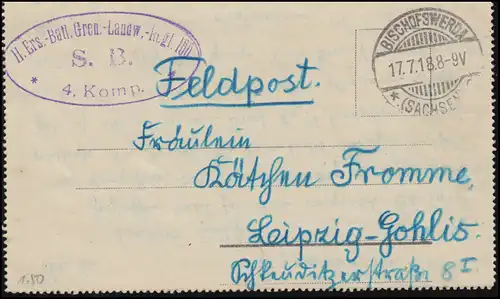 II. Ers.-Batl. Gren.-Landw.-
S. B.
* 4. Komp.
BISCHOFSWERDA
17.7.18.8-9V
* (SACHSEN)
Feldpost.
Fräulein
Kätchen Fromme,
Leipzig-Gohlis.
Schkeuditzerstraße 8 I
1.50